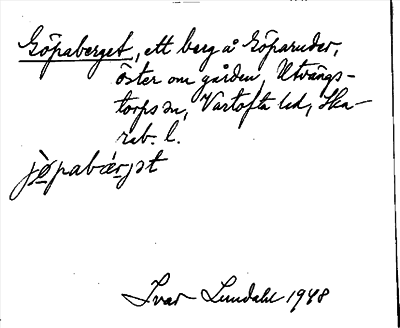 Göpaberget, ett berg å Göparuder,
öster om gården, Utvängs-
torps sn, Vartofta hd, Ska-
rab. l.
jǿpabærjət
Ivar Lundahl 1948